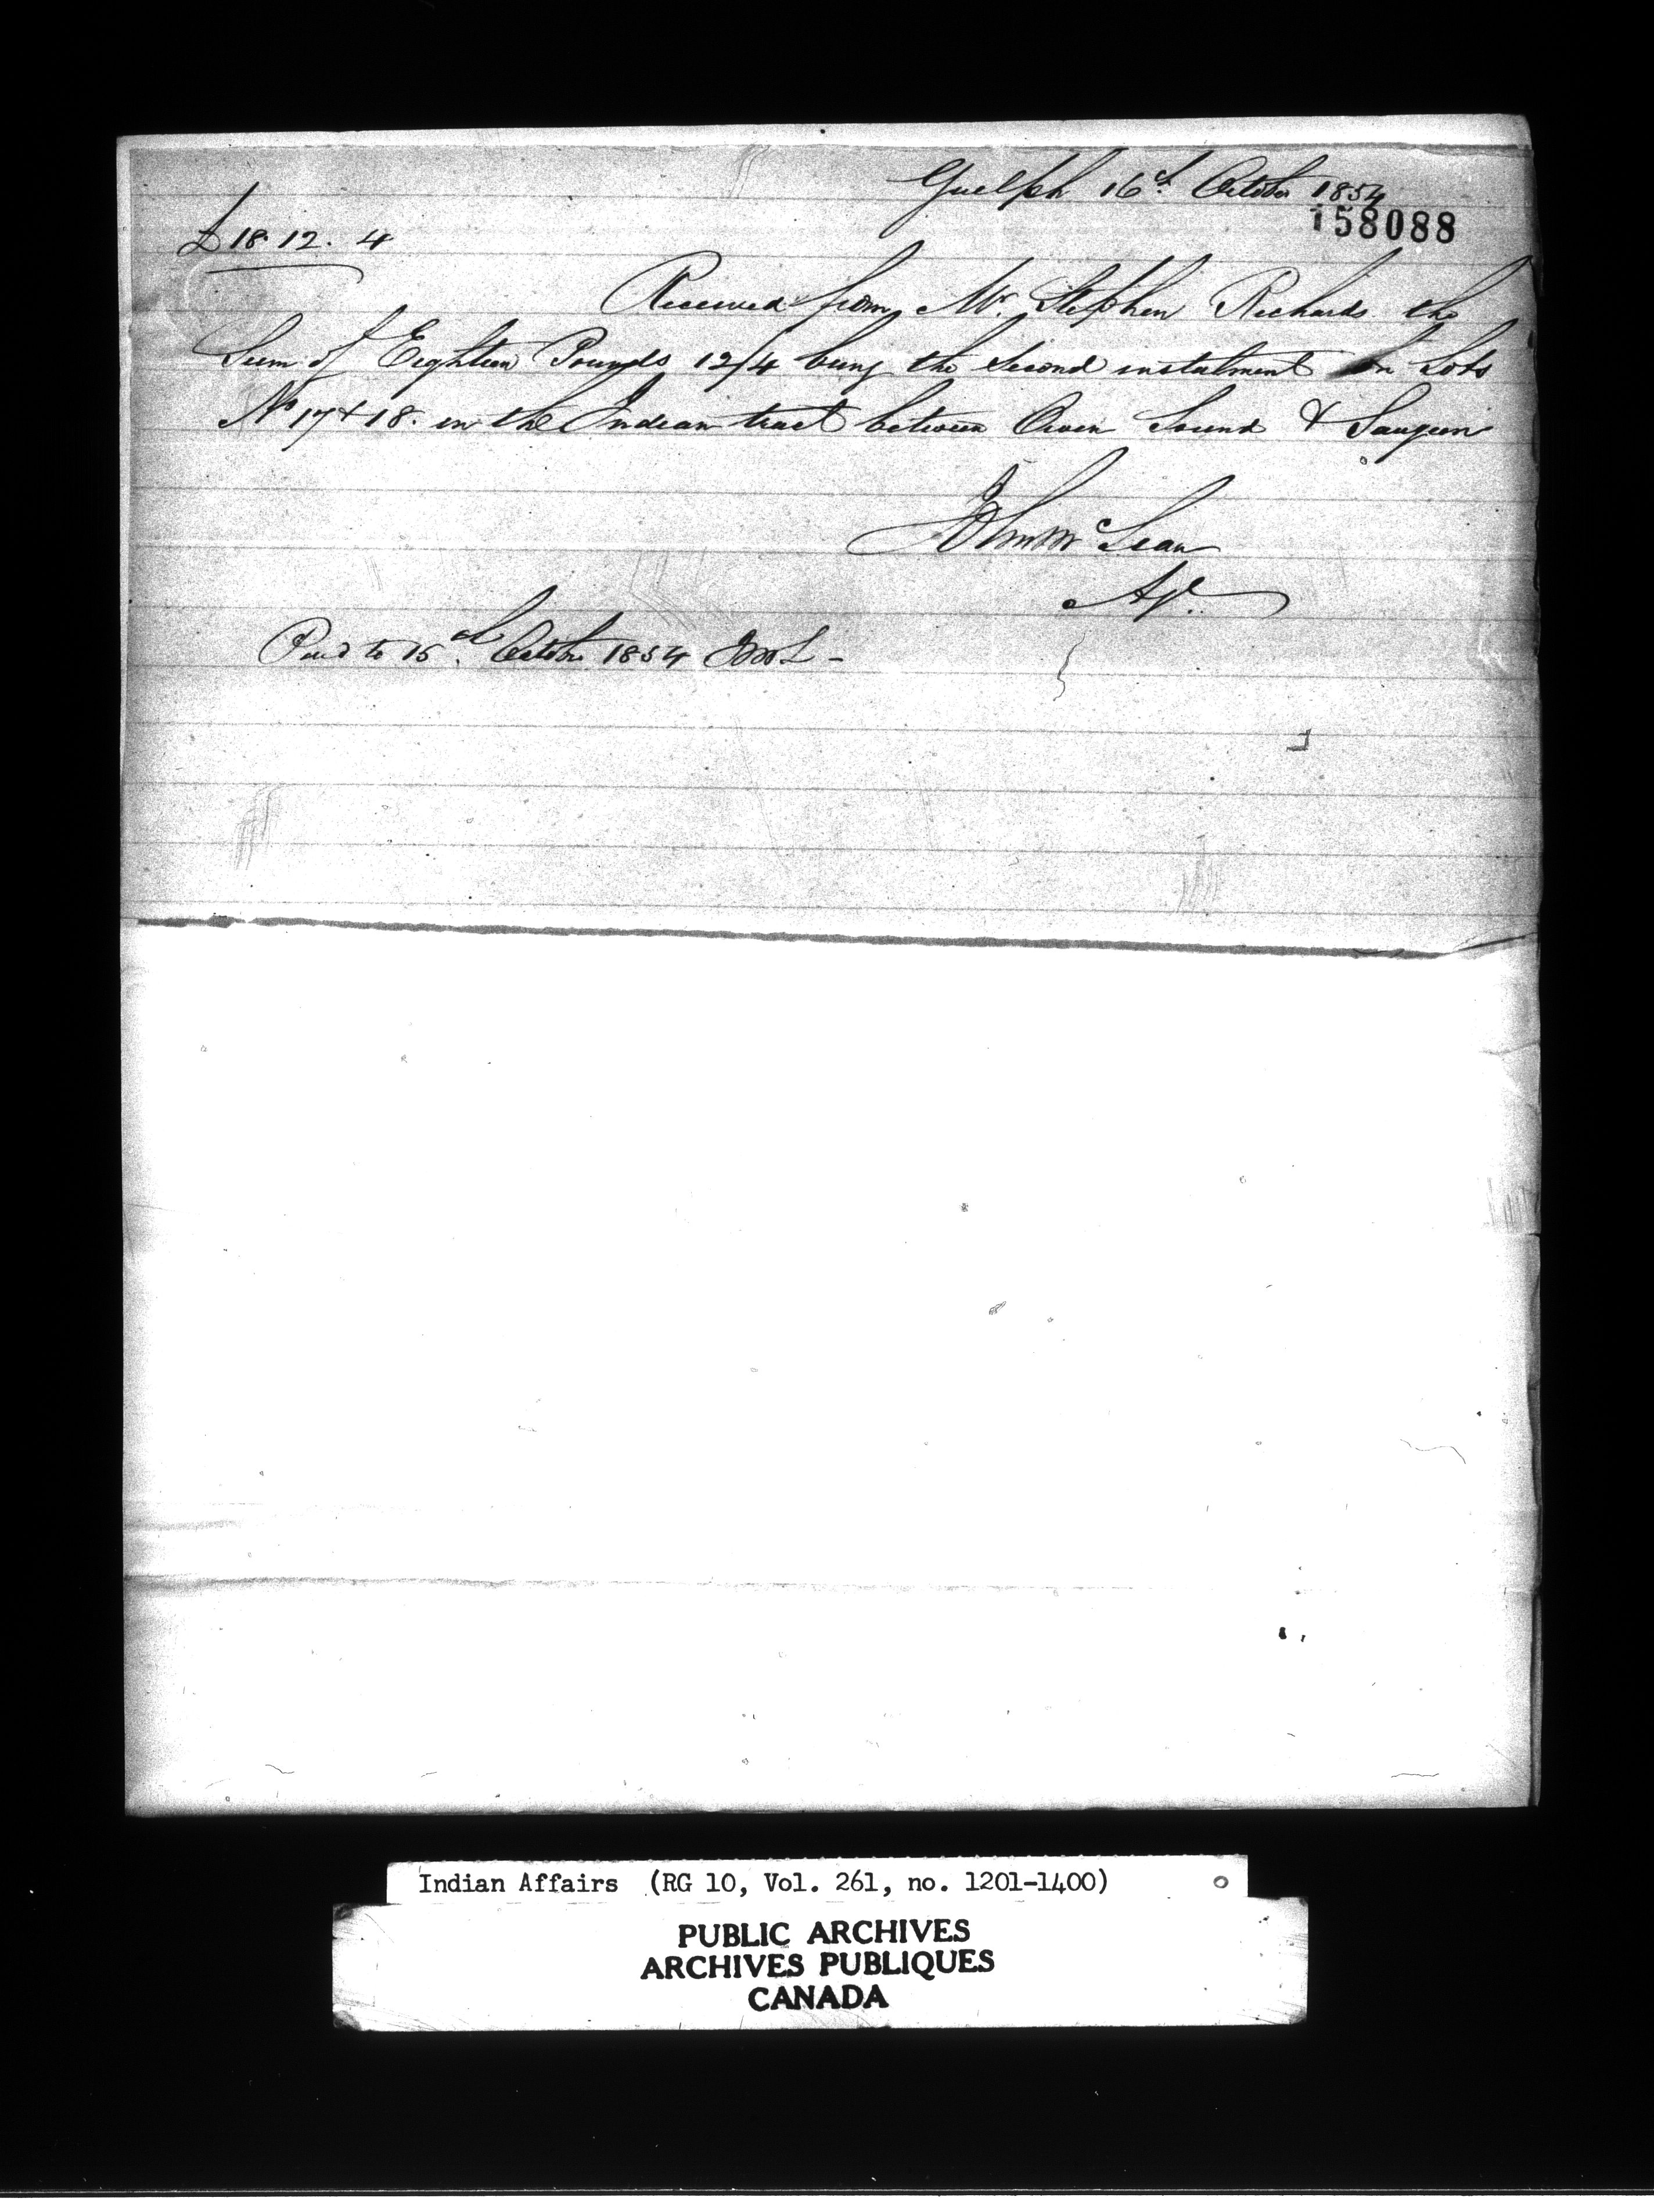 Guelph 16th October 1854
158088
£18.12.4
Received from Mr. Stephen Richards the
Sum of Eighteen Pounds 12/4 being the Second instalment on Lots
No 17 & 18. in the Indian tract between Owen Sound & Saugeen
John McLean
Agt.
Paid to 15th October 1854 JMcL -
Indian Affairs (RG 10, Vol. 261, no. 1201-1400)
PUBLIC ARCHIVES
ARCHIVES PUBLIQUES
CANADA